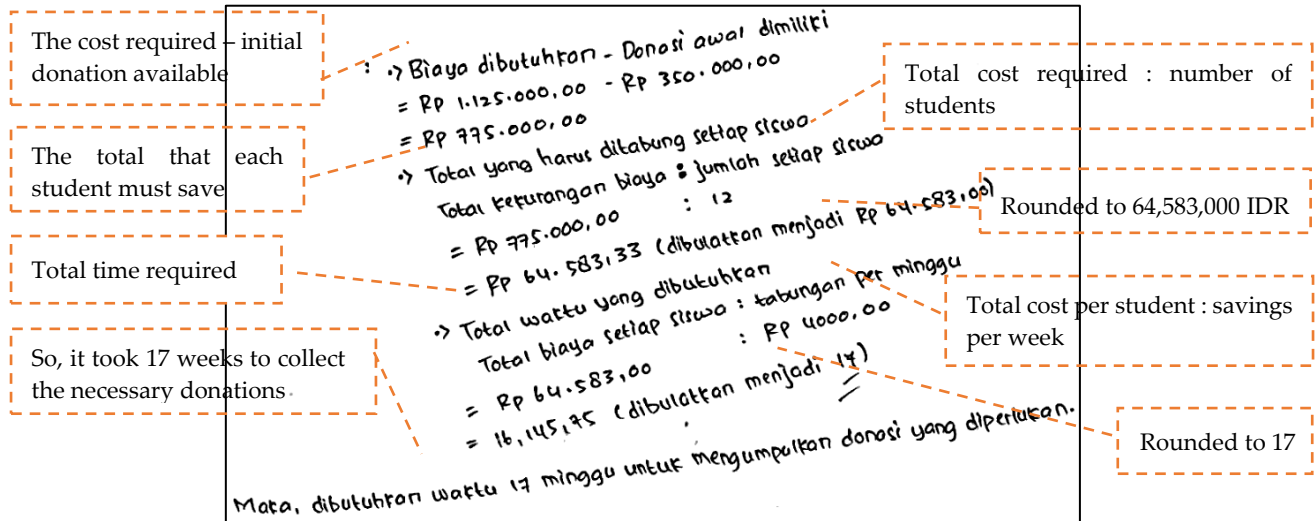 The cost required – initial
donation available
The total that each
student must save
Total time required
So, it took 17 weeks to collect
the necessary donations.
: •> Biaya dibutuhkan - Donasi awal dimiliki
= Rp 1.125.000,00 - Rp 350.000,00
= Rp 775.000,00
•> Total yang harus ditabung setiap siswa
Total kekurangan biaya : jumlah setiap siswa
= Rp 775.000,00 : 12
= Rp 64.583,33 (dibulatkan menjadi Rp 64.583,00)
•> Total waktu yang dibutuhkan
Total biaya setiap siswa : tabungan per minggu
= Rp 64.583,00 : Rp 4000,00
= 16,145,75 (dibulatkan menjadi 17)
Maka, dibutuhkan waktu 17 minggu untuk mengumpulkan donasi yang diperlukan.
Total cost required : number of
students
Rounded to 64,583,000 IDR
Total cost per student : savings
per week
Rounded to 17